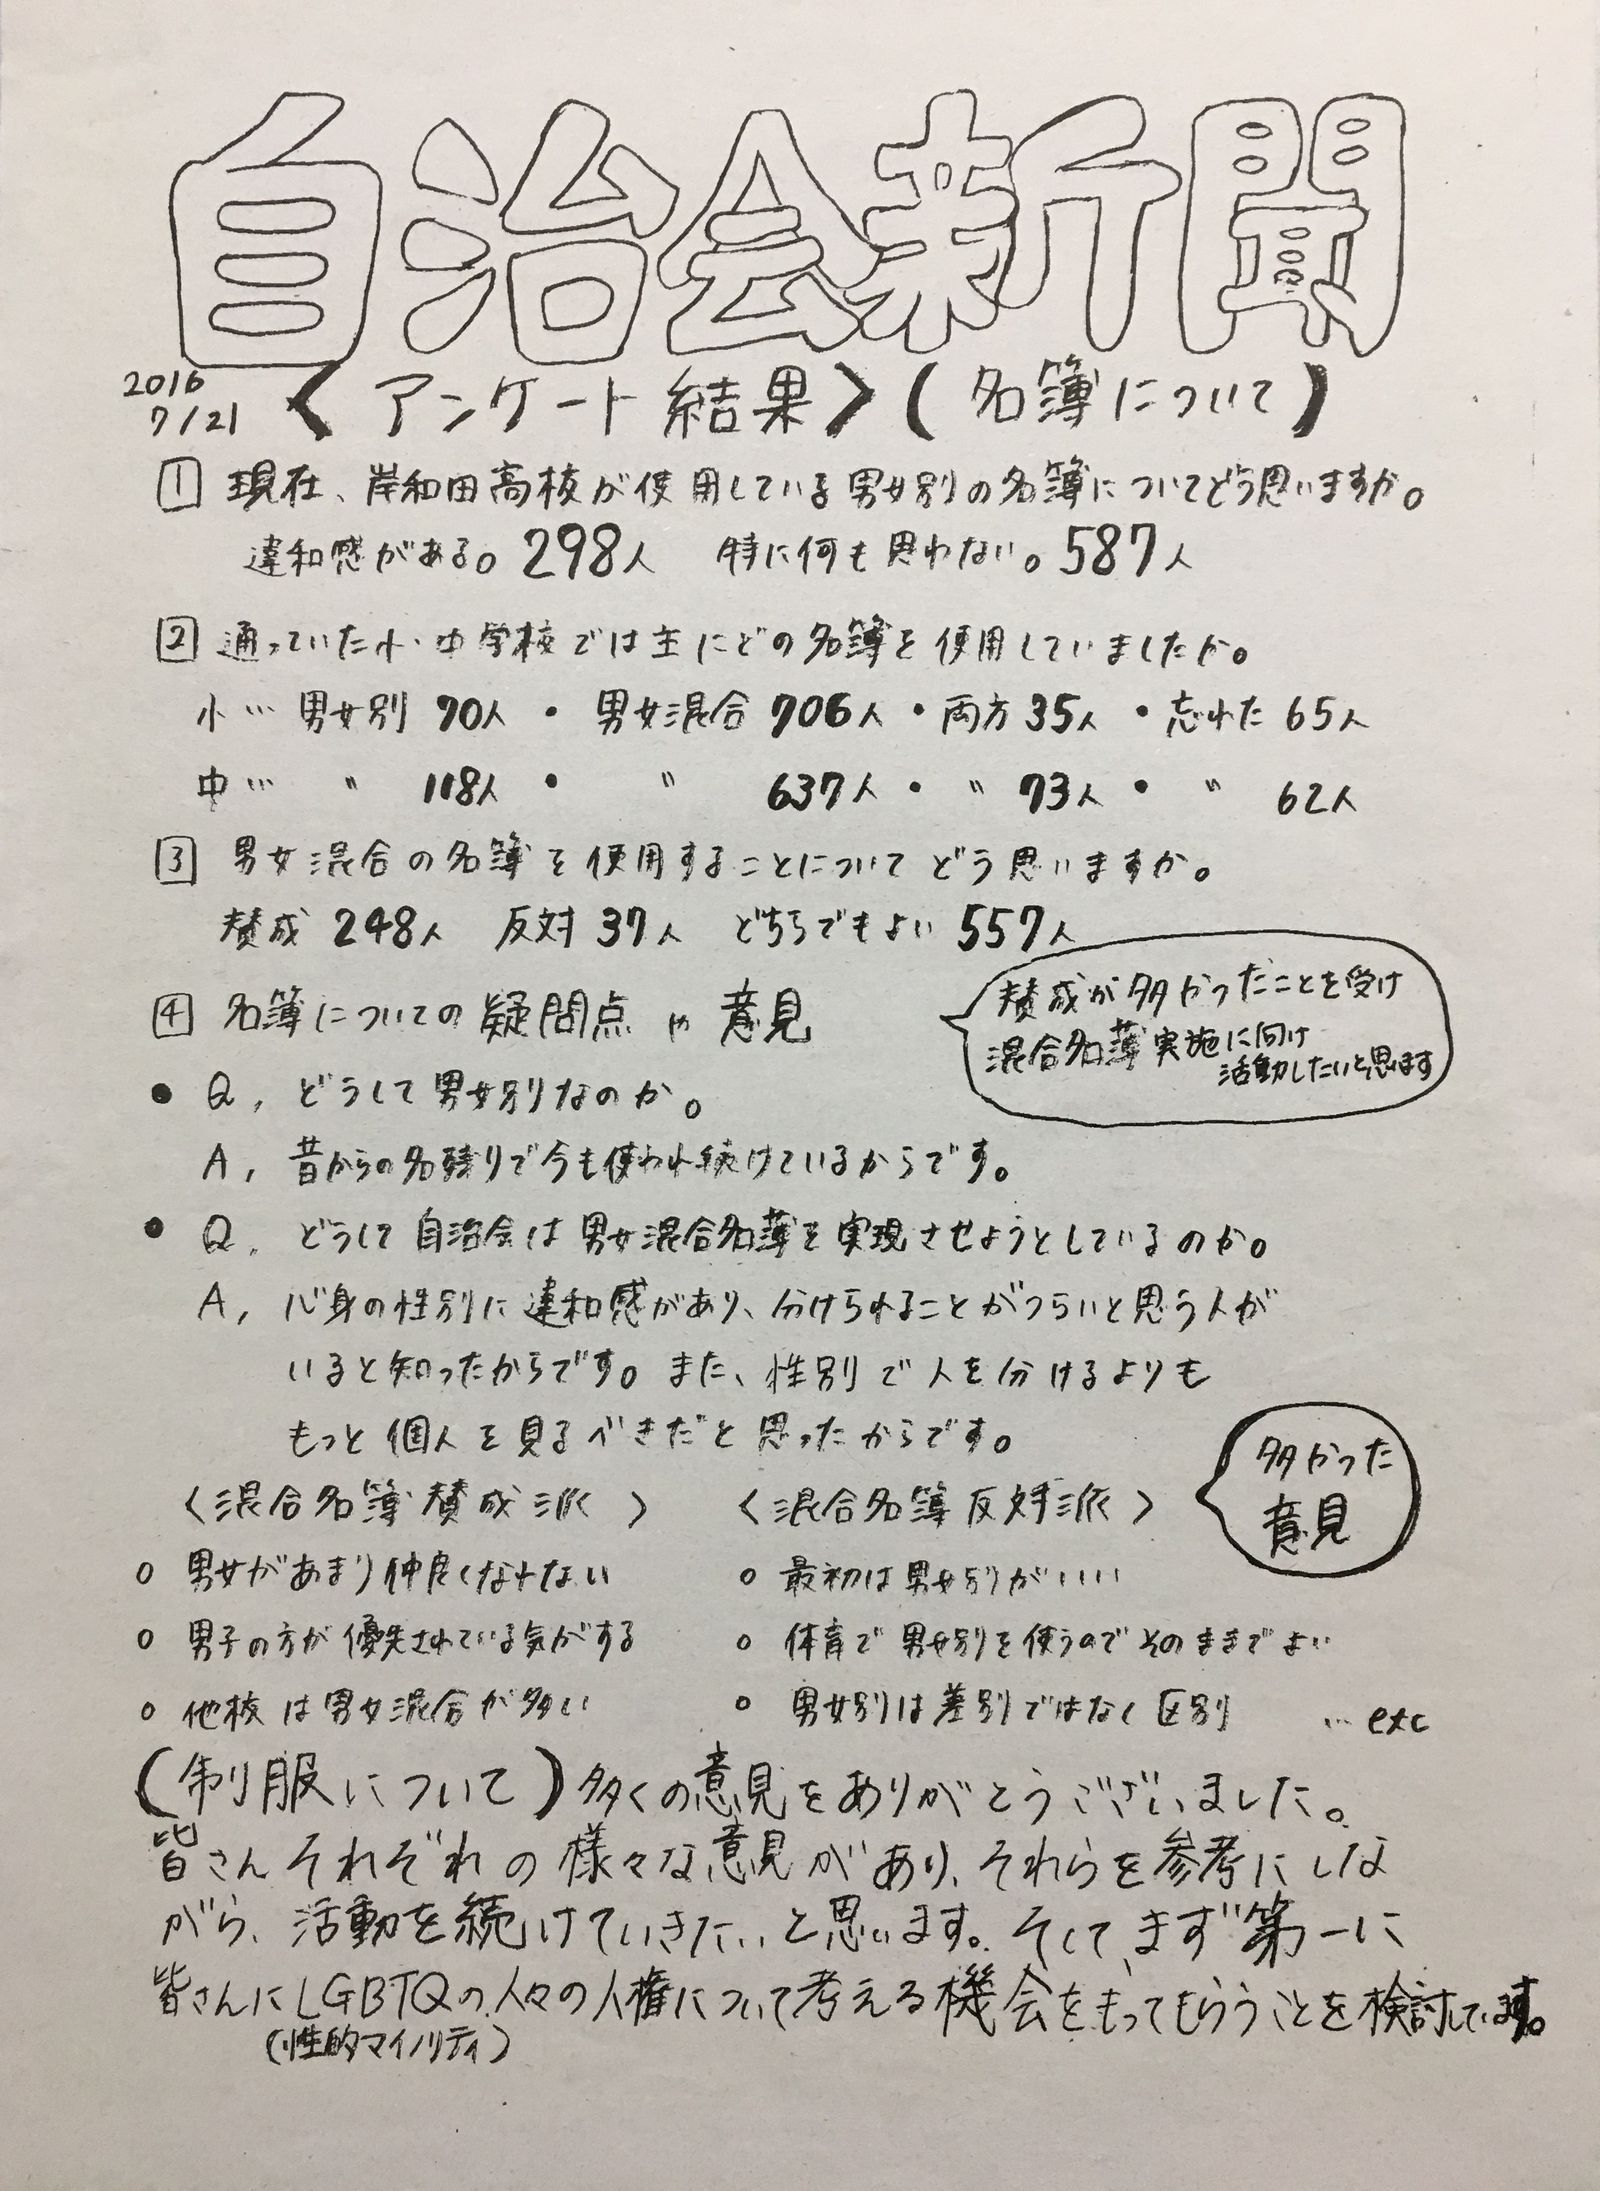 自治会新聞
2016
7/21
<アンケート結果>(名簿について)
1 現在、岸和田高校が使用している男女別の名簿についてどう思いますか。
違和感がある。298人 特に何も思わない。587人
2 通っていた小・中学校では主にどの名簿を使用していましたか。
小… 男女別 70人 ・ 男女混合 706人 ・両方 35人 ・忘れた 65人
中… 〃 118人 ・ 〃 637人 ・ 〃 73人 ・ 〃 62人
3 男女混合の名簿を使用することについてどう思いますか。
賛成 248人 反対 37人 どちらでもよい 557人
賛成が多かったことを受け
混合名簿実施に向け
活動したいと思います
4 名簿についての疑問点や意見
● Q, どうして男女別なのか。
A, 昔からの名残りで今も使われ続けているからです。
● Q, どうして自治会は男女混合名簿を実現させようとしているのか。
A, 心身の性別に違和感があり、分けられることがつらいと思う人が
いると知ったからです。また、性別で人を分けるよりも
もっと個人を見るべきだと思ったからです。
多かった
意見
<混合名簿賛成派> <混合名簿反対派>
○ 男女があまり仲良くなれない ○ 最初は男女別がいい
○ 男子の方が優先されている気がする ○ 体育で男女別を使うのでそのままでよい
○ 他校は男女混合が多い ○ 男女別は差別ではなく区別 …etc
(制服について)多くの意見をありがとうございました。
皆さんそれぞれの様々な意見があり、それらを参考にしな
がら、活動を続けていきたいと思います。そしてまず第一に
皆さんにLGBTQの人々の人権について考える機会をもってもらうことを検討しています。
(性的マイノリティ)